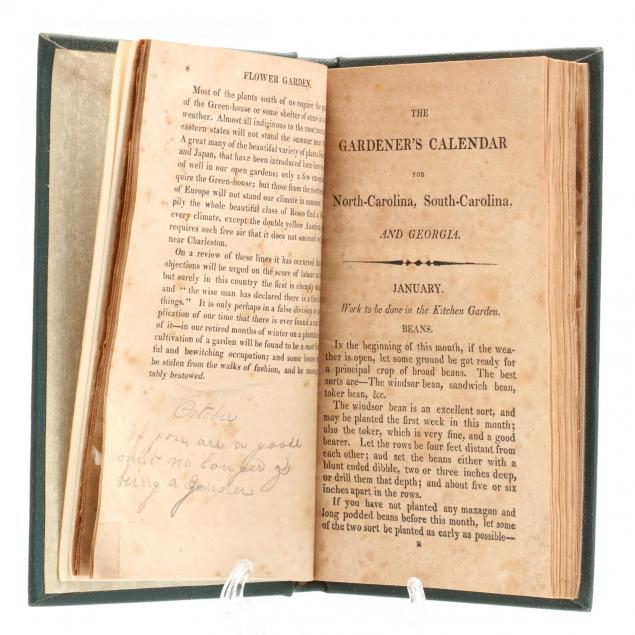 8 FLOWER GARDEN
Most of the plants south of us require the
of the Green-house or some shelter of straw in
weather. Almost all indiginous to the most nort
eastern states will not stand the summer near
A great many of the beautiful variety of plants fr
and Japan, that have been introduced here have
ed well in our open gardens; only a few ex
quire the Green-house; but those from the north
of Europe will not stand our climate in summer
pily the whole beautiful class of Roses find a
every climate, except the double yellow Austri
requires such free air that it does not succeed
near Charleston.
On a review of these lines it has occurred th
objections will be urged on the score of labour an
but surely in this country the first is cheaply
and "the wise man has declared there is a time
things." It is only perhaps in a false division
plication of our time that there is ever found a
of it—in our retired months of winter on a planta
cultivation of a garden will be found to be a most
ful and bewitching occupation; and some hours
be stolen from the walks of fashion, and be mor
tably bestowed.
October
If you are a goose
no longer go
being a gander
THE
GARDENER'S CALENDAR
FOR
North-Carolina, South-Carolina,
AND GEORGIA.
JANUARY.
Work to be done in the Kitchen Garden.
BEANS.
In the beginning of this month, if the wea-
ther is open, let some ground be got ready for
a principal crop of broad beans. The best
sorts are—The windsor bean, sandwich bean,
toker bean, &c.
The windsor bean is an excellent sort, and
may be planted the first week in this month;
also the toker, which is very fine, and a good
bearer. Let the rows be four feet distant from
each other; and set the beans either with a
blunt ended dibble, two or three inches deep,
or drill them that depth; and about five or six
inches apart in the rows.
If you have not planted any mazagon and
long podded beans before this month, let some
of the two sort be planted as early as possible—
B